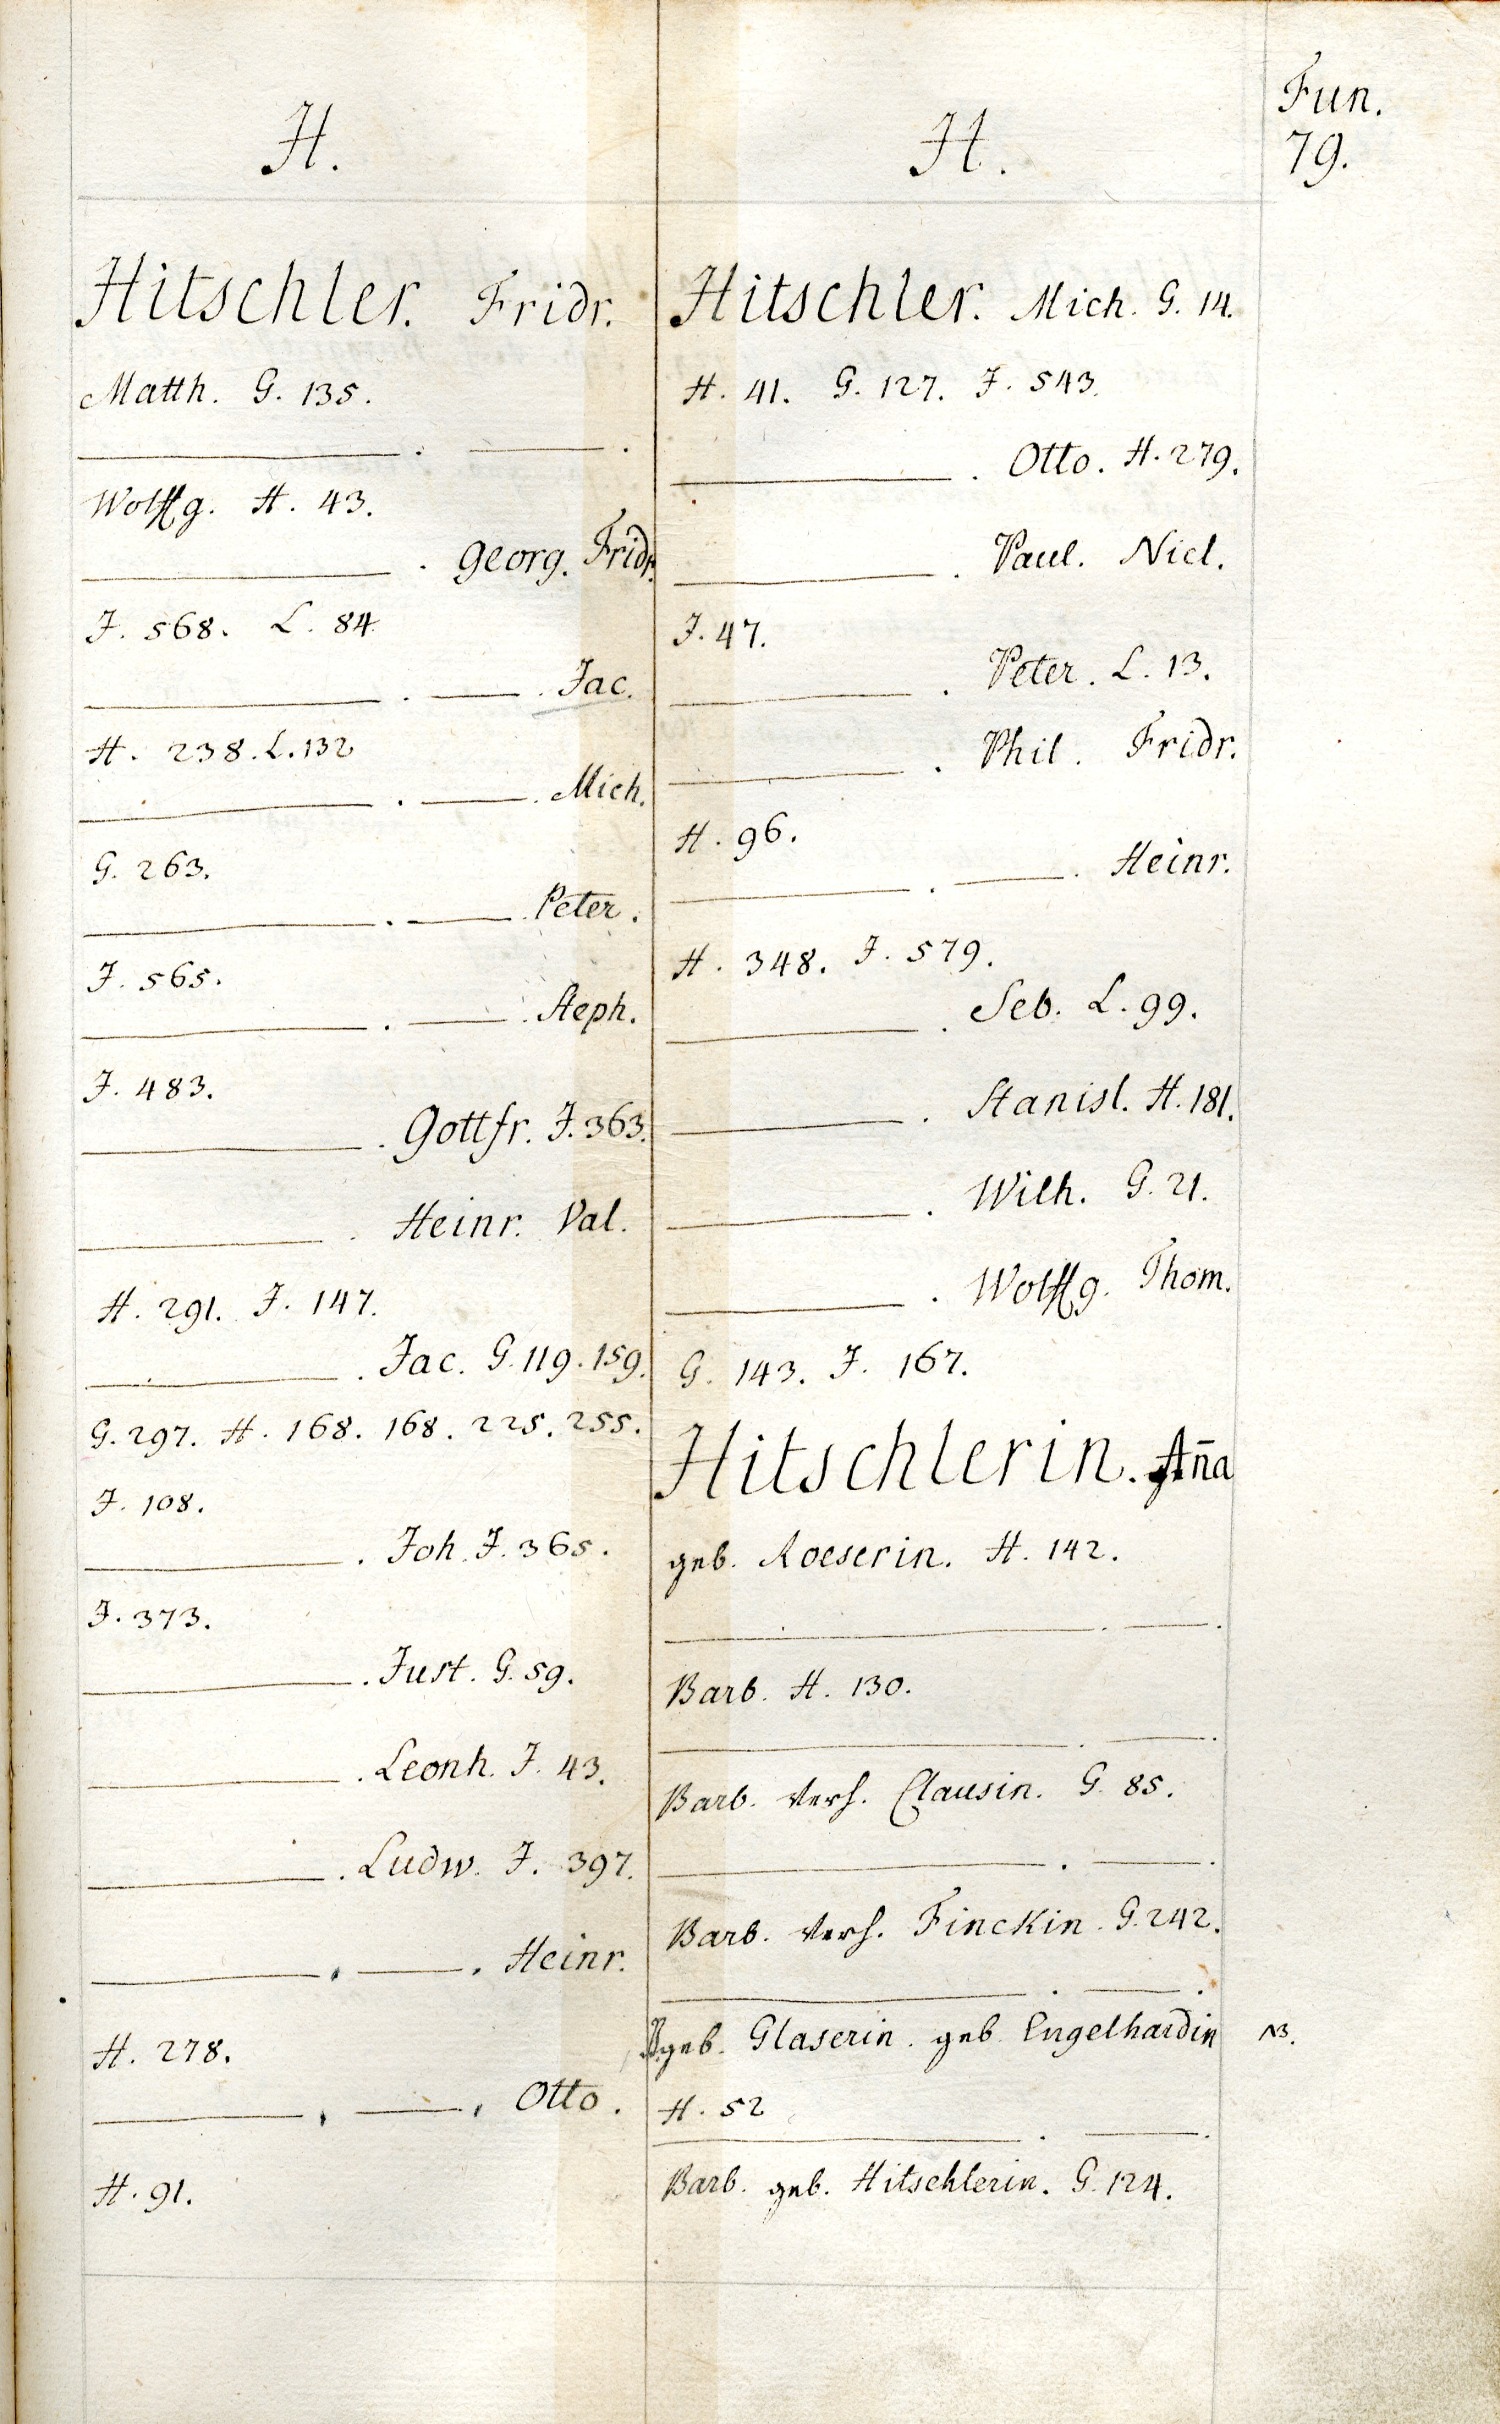 Fun.
79.
H.
Hitschler. Fridr.
Matth. G. 135.
———. ———.
Wolffg. H. 43.
———. Georg. Fridr.
J. 568. L. 84.
———. ———. Jac.
H. 238. L. 132
———. ———. Mich.
G. 263.
———. ———. Peter.
J. 565.
———. ———. Steph.
J. 483.
———. Gottfr. J. 363.
———. Heinr. Val.
H. 291. J. 147.
———. Jac. G. 119. 159.
G. 297. H. 168. 168. 225. 255.
J. 108.
———. Joh. J. 365.
J. 373.
———. Just. G. 59.
———. Leonh. J. 43.
———. Ludw. J. 397.
———. ———. Heinr.
H. 278.
———. ———. Otto.
H. 91.
H.
Hitschler. Mich. G. 14.
H. 41. G. 127. J. 543.
———. Otto. H. 279.
———. Paul. Nicl.
J. 47.
———. Peter. L. 13.
———. Phil. Fridr.
H. 96.
———. ———. Heinr.
H. 348. J. 579.
———. Seb. L. 99.
———. Stanisl. H. 181.
———. Wilh. G. 21.
———. Wolffg. Thom.
G. 143. J. 167.
Hitschlerin. An̄a
geb. Roeserin. H. 142.
———. ———.
Barb. H. 130.
———. ———.
Barb. verh. Clausin. G. 85.
———. ———.
Barb. verh. Finckin. G. 242.
———. ———.
B. geb. Glaserin. geb. Engelhardin NB.
H. 52
———. ———.
Barb. geb. Hitschlerin. G. 124.